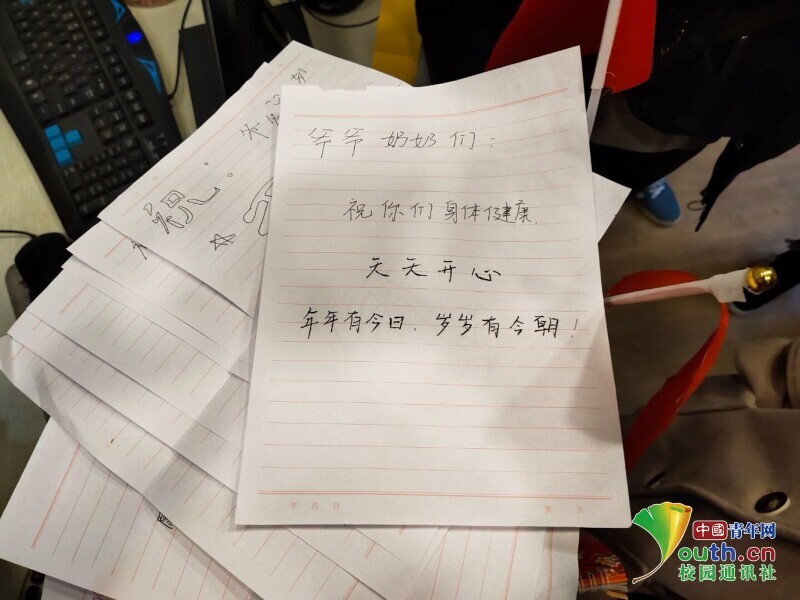 爷爷奶奶们:
祝你们身体健康.
天天开心
年年有今日.岁岁有今朝!
年 月 日
第 页
祝
中國青年网
youth.cn
校园通讯社